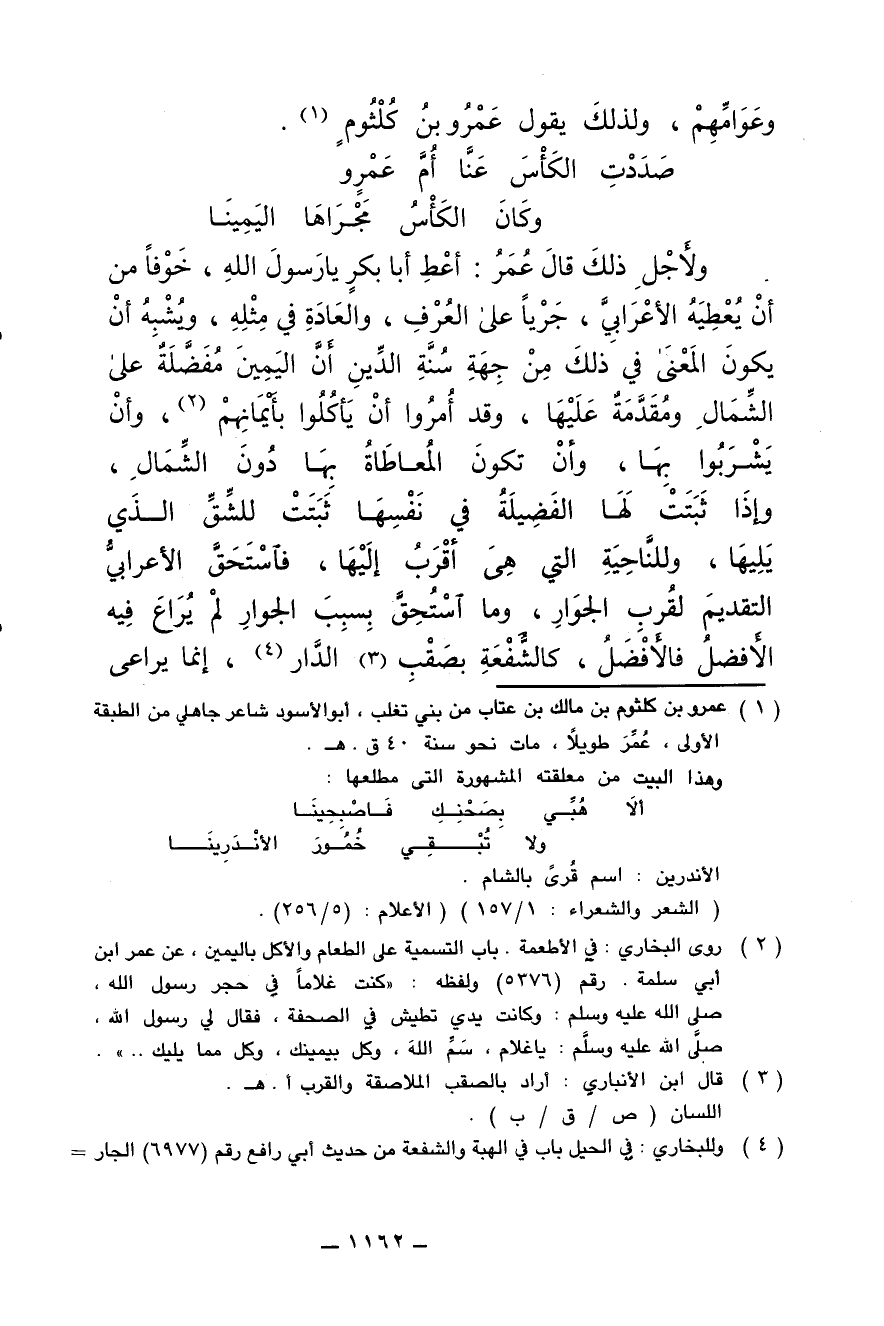 وعَوَامِّهِمْ ، ولذلكَ يقول عَمْرُو بنُ كُلْثُومٍ (١) .
صَدَدْتِ الكَأْسَ عَنَّا أُمَّ عَمْرٍو
وكَانَ الكَأْسُ مَجْرَاهَا اليَمِينَا
ولأَجْلِ ذلكَ قالَ عُمَرُ : أعْطِ أبا بكرٍ يارَسولَ اللهِ ، خَوْفاً من
أنْ يُعْطيَهُ الأعْرَابيَّ ، جَرْياً علىٰ العُرْفِ ، والعَادَةِ في مِثْلِهِ ، ويُشْبِهُ أنْ
يكونَ المَعْنَىٰ في ذلكَ مِنْ جِهَةِ سُنَّةِ الدِّينِ أَنَّ اليَمِينَ مُفَضَّلَةٌ علىٰ
الشِّمَالِ ومُقَدَّمَةٌ عَلَيْهَا ، وقد أُمِرُوا أنْ يَأكُلُوا بأَيْمَانِهِمْ (٢) ، وأنْ
يَشْرَبُوا بِهَا ، وأنْ تكونَ المُعاطَاةُ بِهَا دُونَ الشِّمَالِ ،
وإذَا ثَبَتَتْ لَهَا الفَضِيلَةُ في نَفْسِهَا ثَبَتَتْ للشِّقِّ الذَي
يَلِيهَا ، وللنَّاحِيَةِ التي هِىَ أَقْرَبُ إلَيْهَا ، فَٱسْتَحَقَّ الأعرابيُّ
التقديمَ لقُربِ الجوَارِ ، وما ٱسْتُحِقَّ بِسببِ الجوارِ لمْ يُرَاعَ فِيه
الأَفضلُ فالأَفْضَلُ ، كالشُّفْعَةِ بصَقْبِ (٣) الدَّار (٤) ، إنما يراعى
( ١ ) عمرو بن كلثوم بن مالك بن عتاب من بني تغلب ، أبوالأسود شاعر جاهلي من الطبقة
الأولى ، عُمِّرَ طويلاً ، مات نحو سنة ٤٠ ق . هـ .
وهذا البيت من معلقته المشهورة التى مطلعها :
ألَا هُبِّي بِصَحْنِكِ فَاصْبِحِينَا
ولا تُبْقِي خُمُورَ الأنْدَرِينَا
الأندرين : اسم قُرىً بالشام .
( الشعر والشعراء : ١٥٧/١ ) ( الأعلام : (٢٥٦/٥) .
( ٢ ) روى البخاري : في الأطعمة . باب التسمية على الطعام والأكل باليمين ، عن عمر ابن
أبي سلمة . رقم (٥٣٧٦) ولفظه : «كنت غلاماً في حجر رسول الله ،
صلى الله عليه وسلم : وكانت يدي تطيش في الصحفة ، فقال لي رسول الله ،
صلَّى الله عليه وسلَّم : ياغلام ، سَمِّ اللهَ ، وكل بيمينك ، وكل مما يليك .. » .
( ٣ ) قال ابن الأنباري : أراد بالصقب الملاصقة والقرب أ . هـ .
اللسان ( ص / ق / ب ) .
( ٤ ) وللبخاري : في الحيل باب في الهبة والشفعة من حديث أبي رافع رقم (٦٩٧٧) الجار =
ـ ١١٦٢ ـ